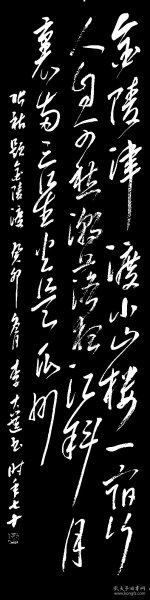 金陵津渡小山楼一宿行
人自可愁潮落夜江斜月
里两三星火是瓜州
张祜题金陵渡 癸卯 李 书 时年七十